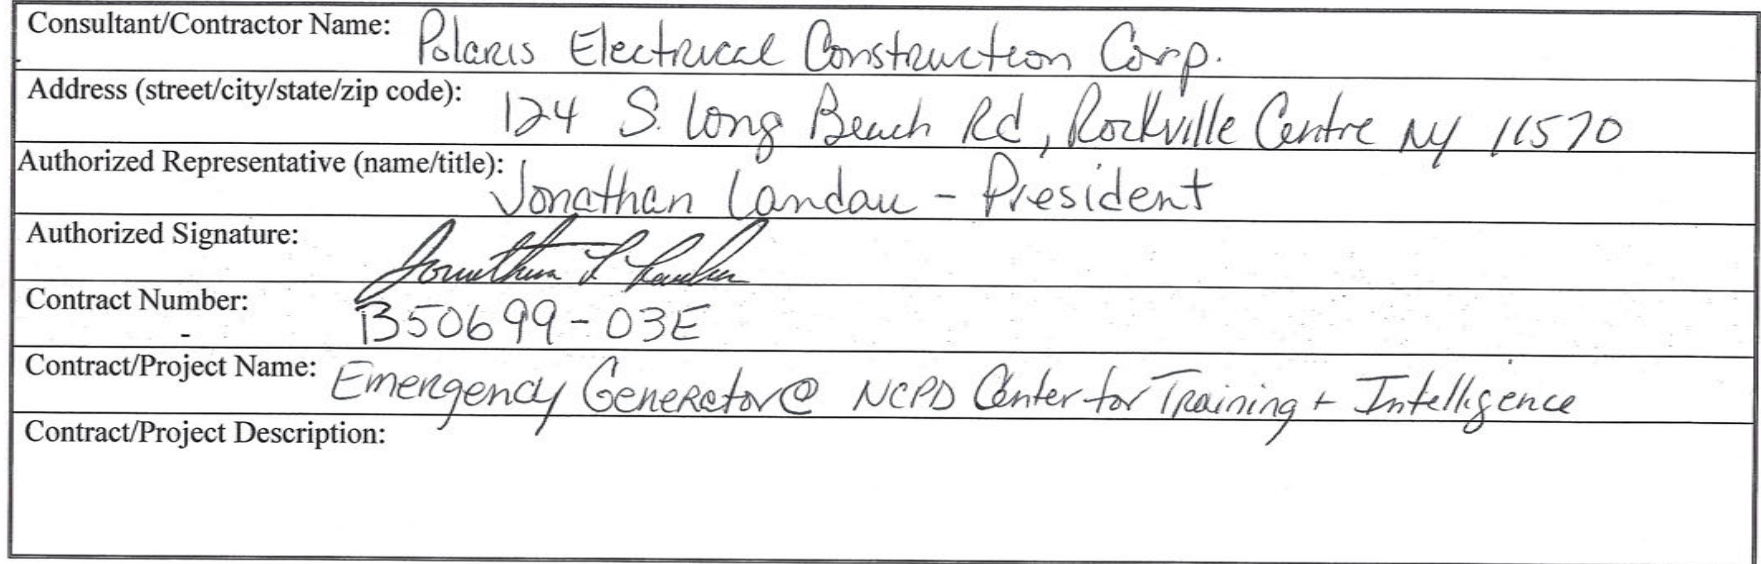 Consultant/Contractor Name: Polaris Electrical Construction Corp.
Address (street/city/state/zip code): 124 S. Long Beach Rd, Rockville Centre NY 11570
Authorized Representative (name/title): Jonathan Landau - President
Authorized Signature: Jonathan L Landau
Contract Number: B50699-03E
Contract/Project Name: Emergency Generator @ NCPD Center for Training + Intelligence
Contract/Project Description: